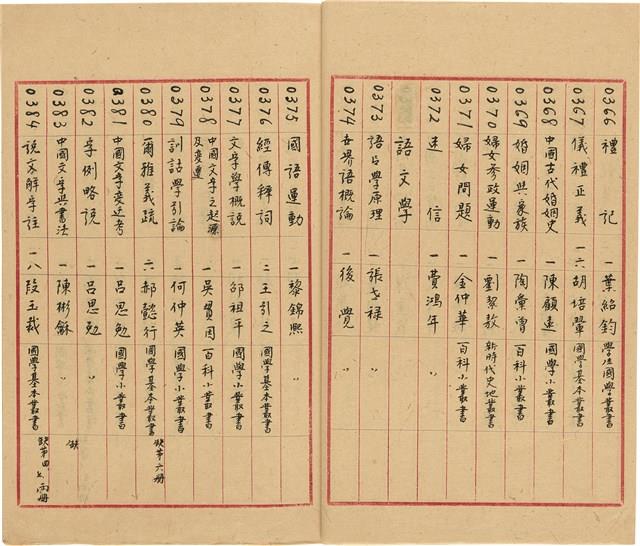 0366 禮記 一 葉紹鈞 學生國學叢書
0367 儀禮正義 一六 胡培翬 國學基本叢書
0368 中國古代婚姻史 一 陳顧遠 國學小叢書
0369 婚姻與家族 一 陶彙曾 百科小叢書
0370 婦女參政運動 一 劉絜敖 新時代史地叢書
0371 婦女問題 一 金仲華 百科小叢書
0372 迷信 一 費鴻年 〃
語文學
0373 語言學原理 一 張世祿 〃
0374 世界語概論 一 後覺 〃
0375 國語運動 一 黎錦熙 〃
0376 經傳釋詞 二 王引之 國學基本叢書
0377 文字學概說 一 邵祖平 國學小叢書
0378 中國文字之起源及變遷 一 吳貫因 百科小叢書
0379 訓詁學引論 一 何仲英 國學小叢書
0380 爾雅義疏 六 郝懿行 國學基本叢書 缺第六冊
0381 中國文字變迁考 一 呂思勉 國學小叢書
0382 字例略說 一 呂思勉 〃
0383 中國文字與書法 一 陳彬龢 〃 缺
0384 說文解字註 一八 段玉裁 國學基本叢書 缺第四七兩冊